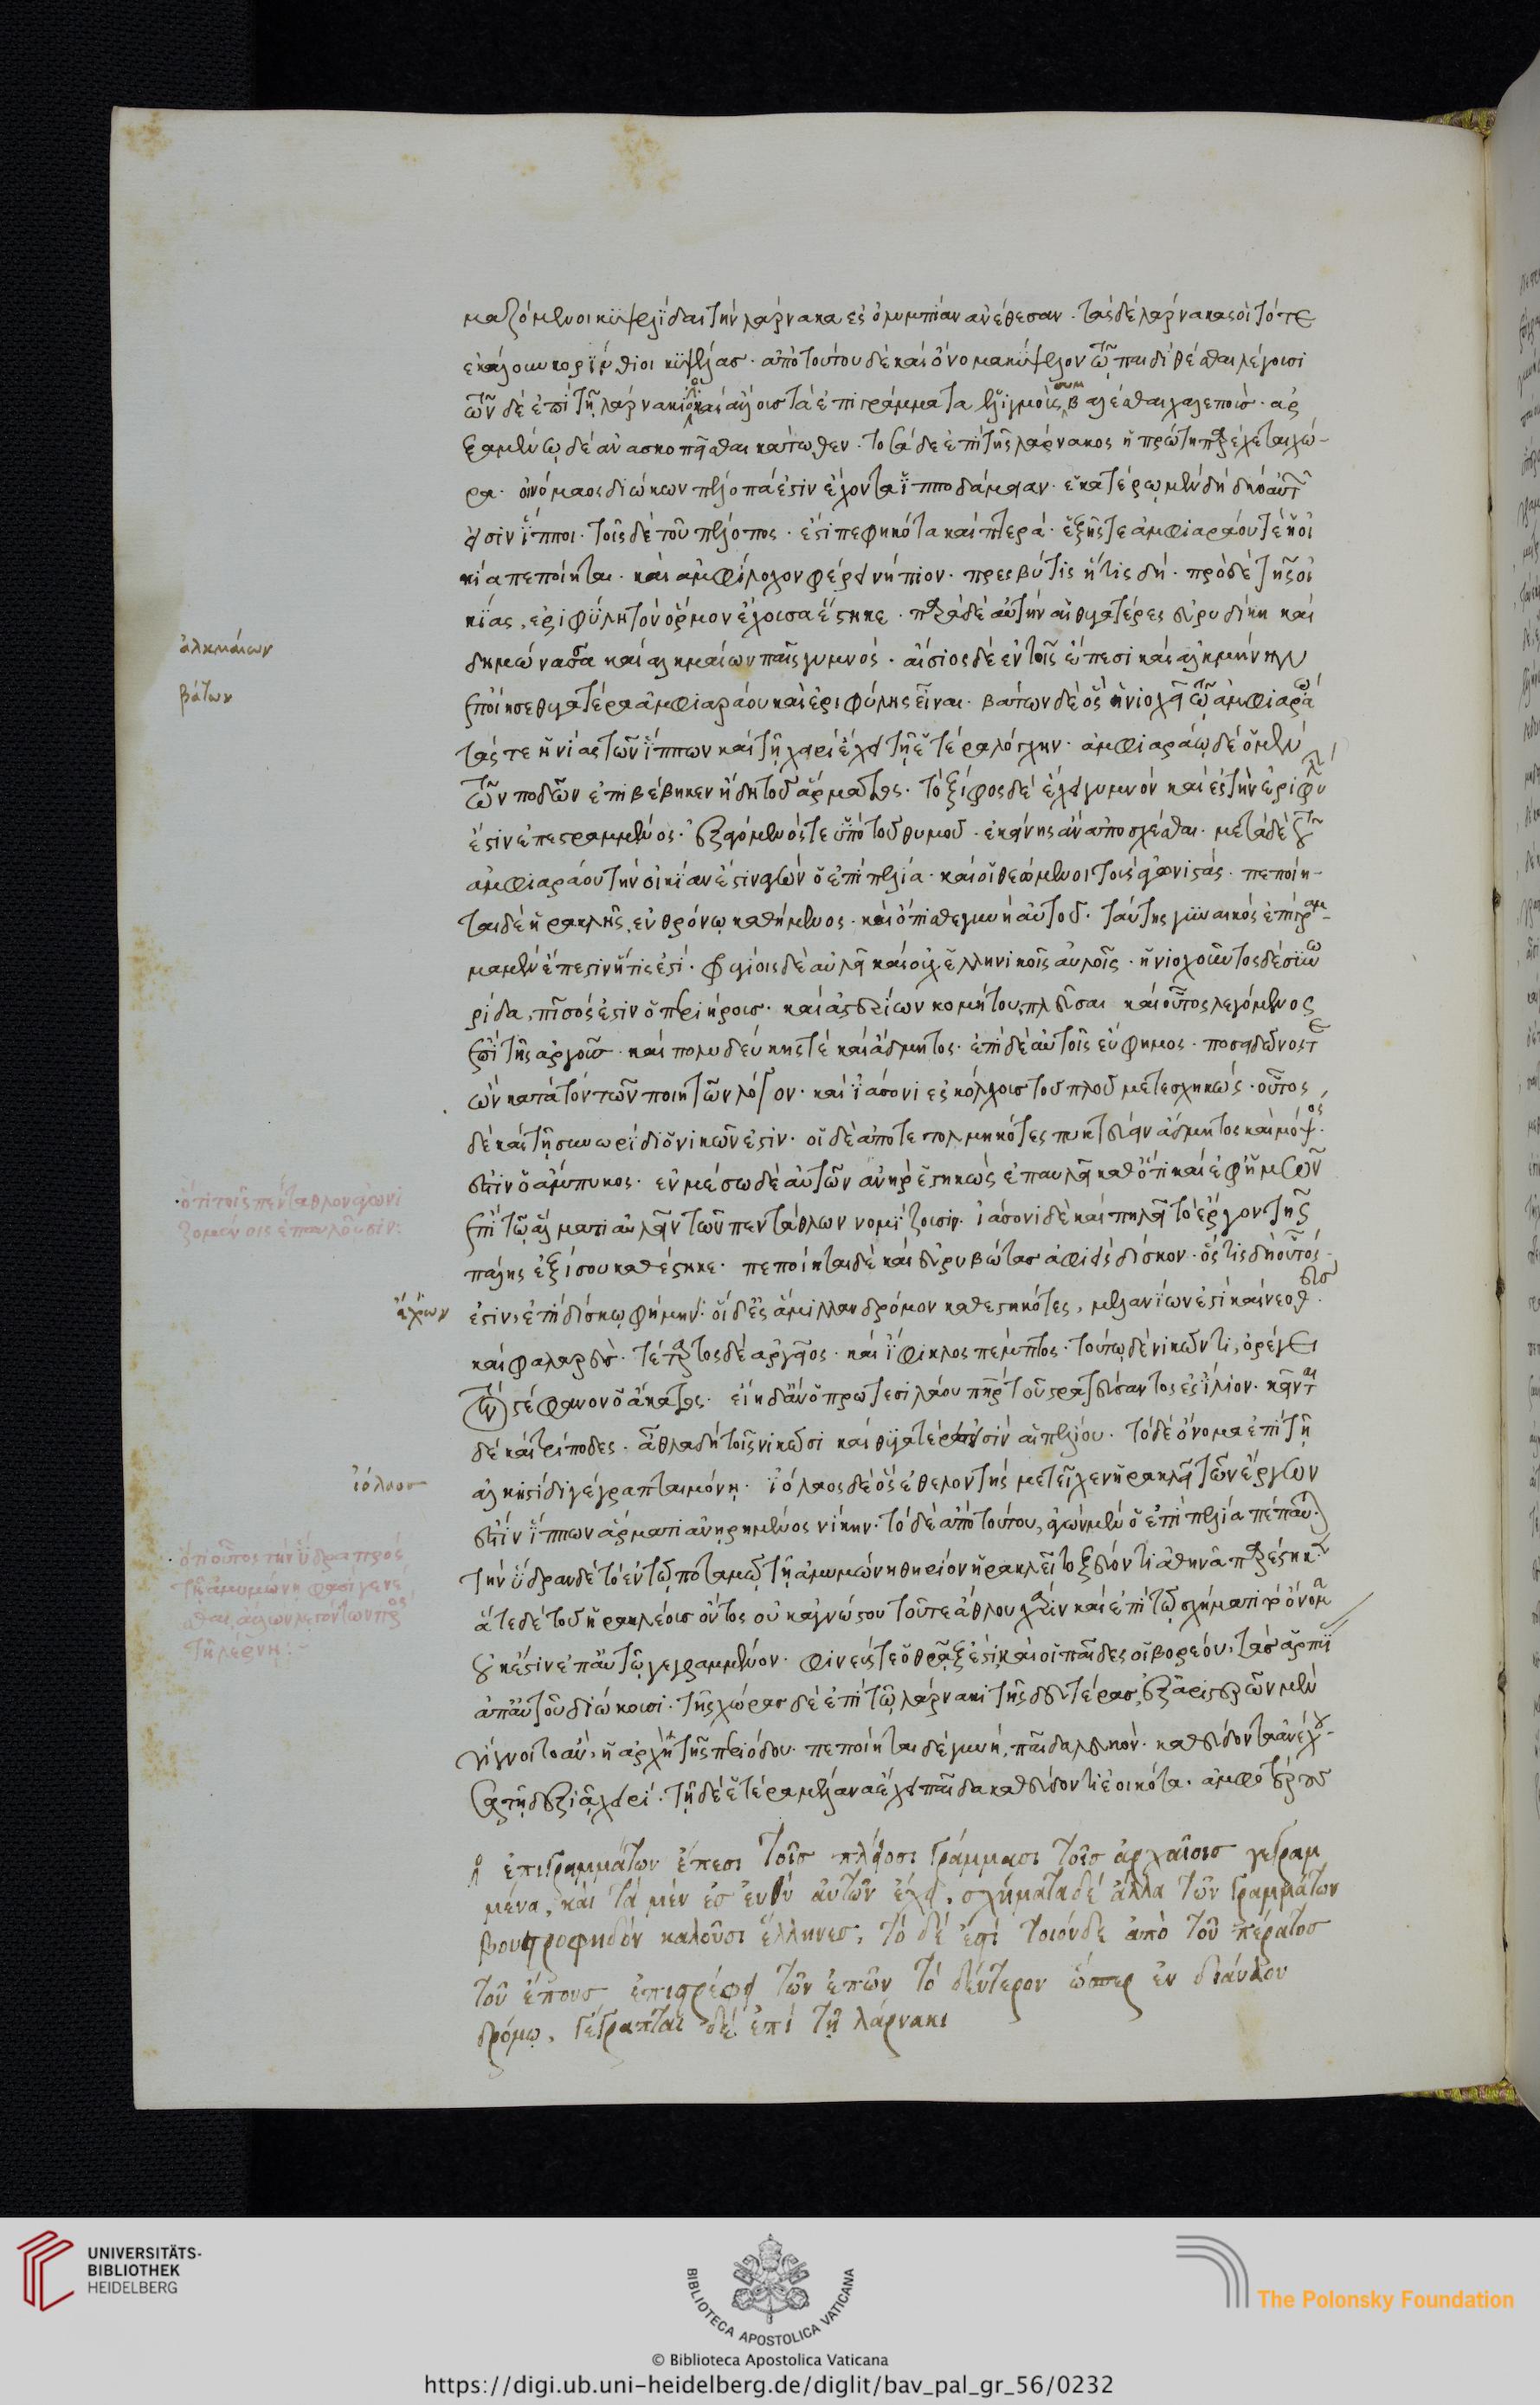 μαζόμενοι κυψελίδαι τὴν λάρνακα ἐς ὀλυμπίαν ἀνέθεσαν· τὰς δὲ λάρνακας οἱ τότε
ἐκάλουν κορίνθιοι κυψέλας· ἀπὸ τούτου δὲ καὶ ὄνομα κύψελον τῶ παιδὶ θέσθαι λέγουσι
τῶν δὲ ἐπὶ τῆ λάρνακι καὶ ἄλλοις τὰ ἐπιγράμματα ἑλιγμοῖς συμβαλέσθαι χαλεποῖς· ἀρ
ξαμένω δὲ ἀνασκοπεῖσθαι κάτωθεν· τοσάδε ἐπὶ τῆς λάρνακος ἡ πρώτη παρέχεται χώ-
ρα· οἰνόμαος διώκων πέλοπά ἐστιν ἔχοντα ἱπποδάμειαν· ἑκατέρω μὲν δὴ δύο αὐτ
εἰσὶν ἵπποι· τοῖς δὲ τοῦ πέλοπος· ἐστὶ πεφηκότα καὶ πτερά· ἑξῆς τε ἀμφιαράου τέ ἡ οἰ
κία πεποίηται· καὶ ἀμφίλοχον φέρει νήπιον· πρεσβύτις ἥτις δή· πρὸ δὲ τῆς οἰ
κίας, ἐριφύλη τὸν ὅρμον ἔχουσα ἕστηκε· παρὰ δὲ αὐτὴν αἱ θυγατέρες εὐρυδίκη καὶ
δημώνασσα καὶ ἀλκμαίων παῖς γυμνός· ἄσιος δὲ ἐν τοῖς ἔπεσι καὶ ἀλκμήνην
ἐποίησε θυγατέρα ἀμφιαράου καὶ ἐριφύλης εἶναι· βάτων δὲ ὃς ἡνιοχεῖ τῶ ἀμφιαρά
τάς τε ἡνίας τῶν ἵππων καὶ τῆ χειρὶ ἔχει τῆ ἑτέρα λόγχην· ἀμφιαράω δὲ ὁ μὲν
τῶν ποδῶν ἐπιβέβηκεν ἤδη τοῦ ἅρματος· τὸ ξίφος δὲ ἔχει γυμνὸν καὶ ἐς τὴν ἐριφύ
ἐστιν ἐπεστραμμένος· ἐξαγόμενός τε ὑπὸ τοῦ θυμοῦ· ἐκείνης ἂν ἀποσχέσθαι· μετὰ δὲ
ἀμφιαράου τὴν οἰκίαν ἐστὶν ἀγὼν ὁ ἐπὶ πελία· καὶ οἱ θεώμενοι τοὺς ἀγωνιστάς· πεποίη-
ται δὲ ἡρακλῆς ἐν θρόνω καθήμενος· καὶ ὄπισθε γυνὴ αὐτοῦ· ταύτης γυναικὸς ἐπίγραμ
μα μὲν ἔπεστιν ἥτις ἐστί· φρυγίοις δὲ αὐλεῖ καὶ οὐχ ἑλληνικοῖς αὐλοῖς· ἡνιοχοῦντος δὲ συνω
ρίδα, πῖσός ἐστιν ὁ περιήρους· καὶ ἀστερίων κομήτου, πλεῦσαι καὶ οὗτος λεγόμενος
ἐπὶ τῆς ἀργοῦς· καὶ πολυδεύκης τὲ καὶ ἄδμητος· ἐπὶ δὲ αὐτοῖς εὔφημος· ποσειδῶνός τε
ὢν κατὰ τὸν τῶν ποιητῶν λόγον· καὶ ἰάσονι ἐς κόλχους τοῦ πλοῦ μετεσχηκώς· οὗτος
δὲ καὶ τῆ συνωρίδι ὁ νικῶν ἐστιν· οἱ δὲ ἀποτετολμηκότες πυκτεύειν ἄδμητος καὶ μόψος
ἐστὶν ὁ ἄμπυκος· ἐν μέσω δὲ αὐτῶν ἀνὴρ ἑστηκὼς ἐπαυλεῖ καθότι καὶ ἐφ ἡμῶν
ἐπὶ τῶ ἅλματι αὐλεῖν τῶν πεντάθλων νομίζουσιν· ἰάσονι δὲ καὶ πηλεῖ τὸ ἔργον τῆς
πάλης ἐξ ἴσου καθέστηκε· πεποίηται δὲ καὶ εὐρυβώτας ἀφιεὶς δίσκον· ὅστις δὴ οὗτός
ἐστιν, ἐπὶ δίσκω φήμην· οἱ δὲ ἐς ἅμιλλαν δρόμου καθεστηκότες, μελανίων ἐστὶ καὶ νεοθεὺς
καὶ φαλαρεύς· τέταρτος δὲ ἀργεῖος· καὶ ἴφικλος πέμπτος· τούτω δὲ νικῶντι, ὀρέγει
τὸν στέφανον ὁ ἄκαστος· εἴη δ᾽ ἂν ὁ πρωτεσιλάου πατὴρ τοῦ στρατεύσαντος ἐς ἴλιον· κεῖνται
δὲ καὶ τρίποδες· ἆθλα δὴ τοῖς νικῶσι καὶ θυγατέρες εἰσὶν αἱ πελίου· τὸ δὲ ὄνομα ἐπὶ τῆ
ἀλκηστίδι γέγραπται μόνη· ἰόλαος δὲ ὃς ἐθελοντὴς μετεῖχεν ἡρακλεῖ τῶν ἔργων
ἐστὶν ἵππων ἅρματι ἀνηρημένος νίκην· τὸ δὲ ἀπὸ τούτου, ἀγὼν μὲν ὁ ἐπὶ πελία πέπαυ·
τὴν ὕδραν δὲ τὸ ἐν τῶ ποταμῶ τῆ ἀμυμώνη θηρίον ἡρακλεῖ τοξεύοντι ἀθηνᾶ παρέστηκεν
ἅτε δὲ τοῦ ἡρακλέους ὄντος οὐκ ἀγνώστου τοῦ τε ἄθλου χάριν καὶ ἐπὶ τῶ σχήματι τὸ ὄνομα
οὐκ ἔστιν ἐπ᾽ αὐτῶ γεγραμμένον· φινεύς τε ὁ θρᾶξ ἐστι, καὶ οἱ παῖδες οἱ βορέου, τὰς ἁρπυί
ἀπ᾽ αὐτοῦ διώκουσι· τῆς χώρας δὲ ἐπὶ τῶ λάρνακι τῆς δευτέρας, ἐξ ἀριστερῶν μὲν
γίγνοιτο ἂν, ἡ ἀρχὴ τῆς περιόδου· πεποίηται δὲ γυνή, παῖδα λευκὸν· καθεύδοντα ἀνέχου-
σα τῆ δεξιᾶ χειρί· τῆ δὲ ἑτέρα μέλανα ἔχει παῖδα καθεύδοντι ἐοικότα· ἀμφοτέρους
ἐπιγραμμάτων ἔπεσι τοῖς πλείοσι γράμμασι τοῖς ἀρχαίοις γεγραμ
μένα, καὶ τὰ μὲν ἐς εὐθὺ αὐτῶν ἔχει, σχήματα δὲ ἄλλα τῶν γραμμάτων
βουστροφηδὸν καλοῦσι ἕλληνες, τὸ δέ ἐστι τοιόνδε ἀπὸ τοῦ πέρατος
τοῦ ἔπους ἐπιστρέφει τῶν ἐπῶν τὸ δεύτερον ὥσπερ ἐν διαύλου
δρόμω, γέγραπται δὲ ἐπὶ τῆ λάρνακι
ἀλκμαίων
βάτων
ὅτι τοῖς πένταθλον ἀγωνι
ζομένοις ἐπαυλοῦσιν:
ἰόλαος
ὅτι οὗτος τὴν ὕδρα πρὸς
τῆ ἀμυμώνη φασὶ γενέ
σθαι, ἄλλων λεγόντων πρὸς
τῆ λέρνη:-
UNIVERSITÄTS-
BIBLIOTHEK
HEIDELBERG
BIBLIOTECA APOSTOLICA VATICANA
The Polonsky Foundation
© Biblioteca Apostolica Vaticana
https://digi.ub.uni-heidelberg.de/diglit/bav_pal_gr_56/0232